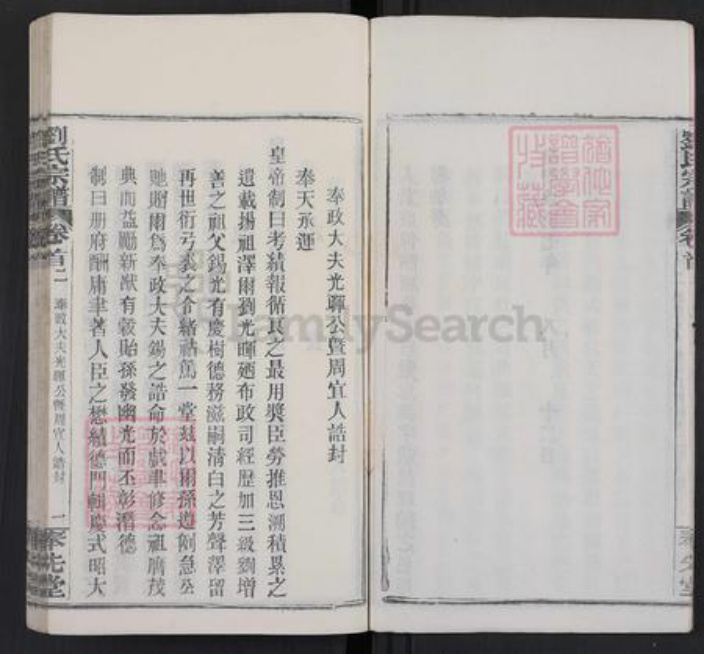 奉政大夫光暉公暨周宜人誥封
奉天承運
皇帝制曰考績報循良之最用奬臣勞推恩溯積累之
遺載揚祖澤爾劉光暉迺布政司經歷加三級劉增
善之祖父錫光有慶樹德務滋嗣清白之芳聲澤留
再世衍弓裘之令緒祜篤一堂玆以爾孫遵例急公
貤贈爾爲奉政大夫錫之誥命於戲聿修念祖膺茂
典而益勵新猷有穀貽孫發幽光而丕彰潛德
制曰册府酬庸聿著人臣之懋績德門輯慶式昭大
劉氏宗譜
卷首二
奉政大夫光暉公暨周宜人誥封
一
奉先堂
劉氏宗譜
卷首
奉先堂
FamilySearch